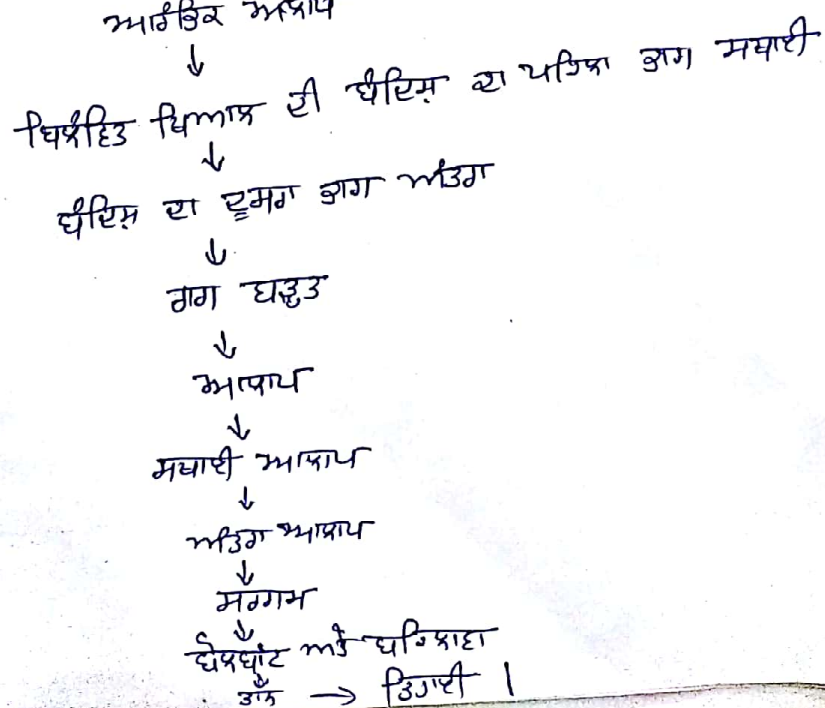 ਆਰੰਭਿਕ ਅਲਾਪ
↓
ਬਿਲੰਵਿਤ ਖਿਆਲ ਦੀ ਬੰਦਿਸ਼ ਦਾ ਪਹਿਲਾ ਭਾਗ ਸਥਾਈ
↓
ਬੰਦਿਸ਼ ਦਾ ਦੂਸਰਾ ਭਾਗ ਅੰਤਰਾ
↓
ਰਾਗ ਬੜ੍ਹਤ
↓
ਆਲਾਪ
↓
ਸਥਾਈ ਆਲਾਪ
↓
ਅੰਤਰਾ ਆਲਾਪ
↓
ਸਰਗਮ
↓
ਬੋਲਬਾਂਟ ਅਤੇ ਬਹਿਲਾਵਾ
↓
ਤਾਨ → ਤਿਹਾਈ |